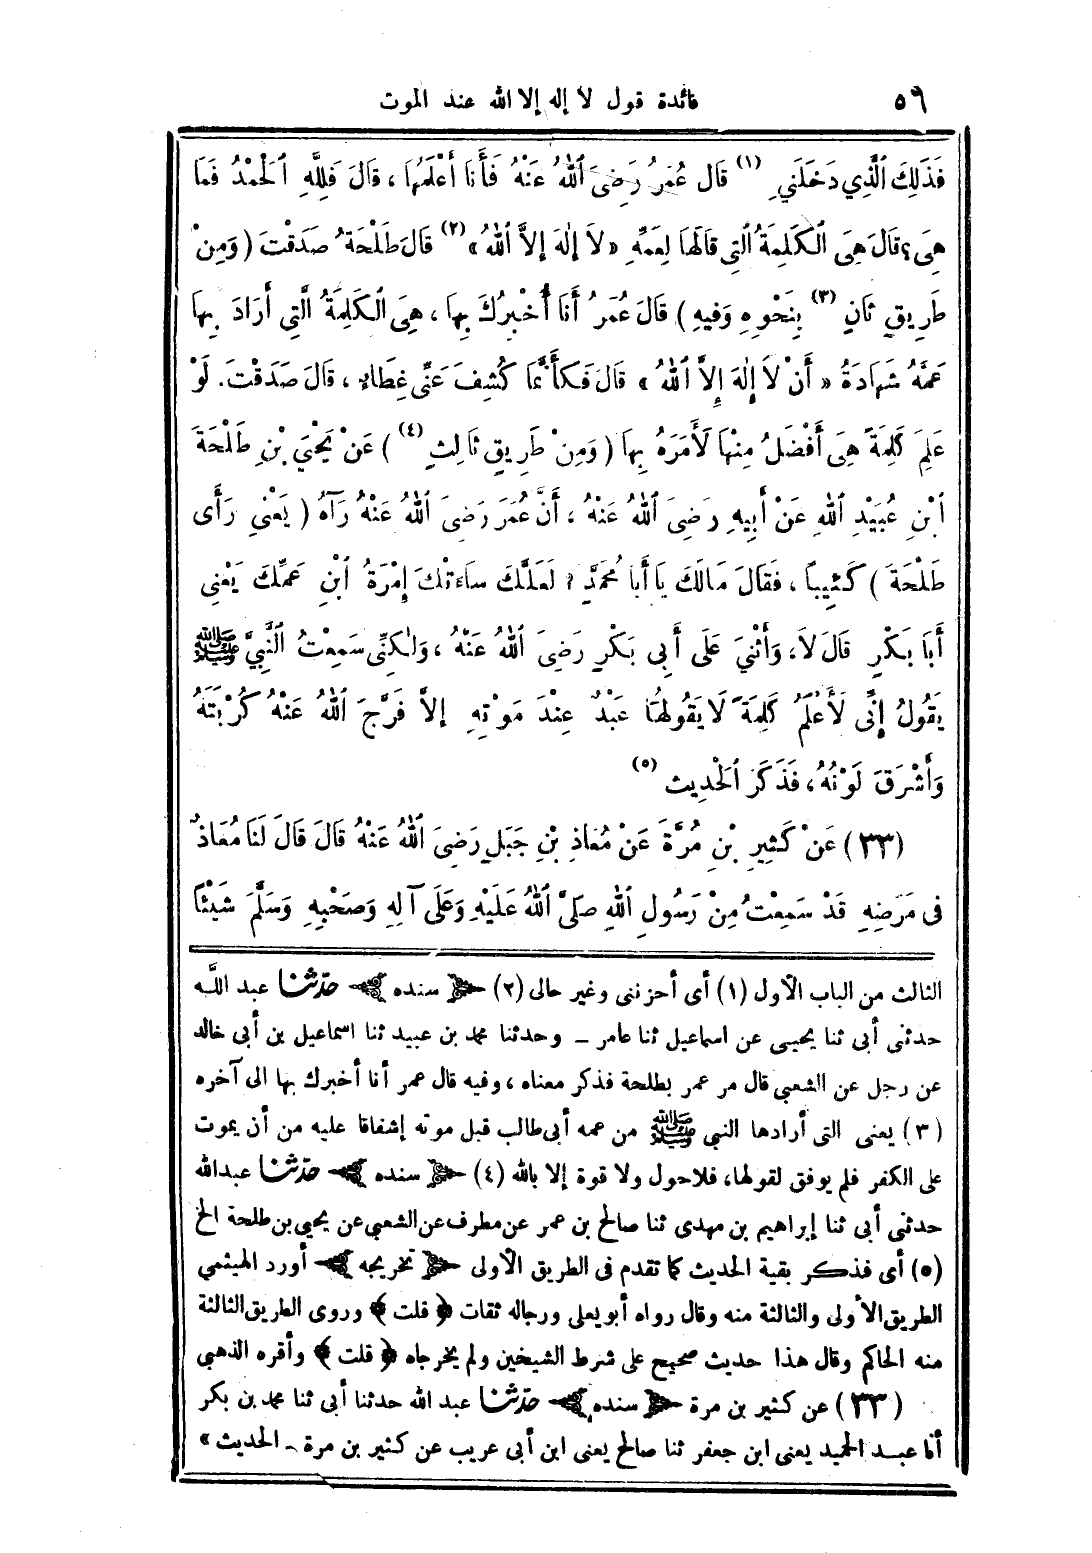 ٥٦ فائدة قول لا إله إلا الله عند الموت
فَذَلِكَ الَّذِي دَخَلَنِي (١) قال عُمَرُ رَضِىَ اللهُ عَنْهُ فَأَنا أَعْلَمُهَا ، قَالَ فَلِلَّهِ الْحَمْدُ فَمَا
هِىَ؟ قَالَ هِىَ الْكَلِمَةُ الَّتِى قالَهَا لِعَمِّهِ «لاَ إِلَهَ إِلاَّ اللهُ» (٢) قَالَ طَلْحَةُ صَدَقْتَ (وَمِنْ
طَرِيقٍ ثَانٍ (٣) بِنَحْوِهِ وَفِيهِ) قَالَ عُمَرُ أَنا أُخْبِرُكَ بِهَا ، هِىَ الْكَلِمَةُ الَّتِي أَرَادَ بِهَا
عَمَّهُ شَهَادَةُ «أَنْ لاَ إِلٰهَ إِلاَّ اللهُ» قَالَ فَكَأَنَّمَا كُشِفَ عَنِّى غِطَاءٌ ، قَالَ صَدَقْتَ. لَوْ
عَلِمَ كَلِمَةً هِىَ أَفْضَلُ مِنْهَا لَأَمَرَهُ بِهَا (وَمِنْ طَرِيقٍ ثَالِثٍ (٤)) عَنْ يَحْيَى بْنِ طَلْحَةَ
ابْنِ عُبَيْدِ اللهِ عَنْ أَبِيهِ رَضِىَ اللهُ عَنْهُ ، أَنَّ عُمَرَ رَضِىَ اللهُ عَنْهُ رَآهُ (يَعْنِى رَأَى
طَلْحَةَ) كَئِيبًا ، فَقَالَ مَالَكَ يَا أَبَا مُحَمَّدٍ ؟ لَعَلَّكَ سَاءَتْكَ إِمْرَةُ ابْنِ عَمِّكَ يَعْنِى
أَبَا بَكْرٍ قَالَ لاَ، وَأَثْنَىٰ عَلَى أَبِى بَكْرٍ رَضِىَ اللهُ عَنْهُ ، وَلٰكِنِّى سَمِعْتُ النَّبِيَّ ﷺ
يَقُولُ إِنِّى لَأَعْلَمُ كَلِمَةً لَا يَقُولُهَا عَبْدٌ عِنْدَ مَوْتِهِ إِلاَّ فَرَّجَ اللهُ عَنْهُ كُرْبَتَهُ
وَأَشْرَقَ لَوْنُهُ ، فَذَكَرَ الْحَدِيث (٥)
(٣٣) عَنْ كَثِيرِ بْنِ مُرَّةَ عَنْ مُعَاذِ بْنِ جَبَلٍ رَضِىَ اللهُ عَنْهُ قَالَ قَالَ لَنَا مُعَاذٌ
فى مَرَضِهِ قَدْ سَمِعْتُ مِنْ رَسُولِ اللهِ صَلَّى اللهُ عَلَيْهِ وَعَلَى آلِهِ وَصَحْبِهِ وَسَلَّمَ شَيْئًا
الثالث من الباب الأول (١) أى أحزننى وغير حالى (٢) ﴿ سنده ﴾ حدّثنا عبد الله
حدثنى أبى ثنا يحيى عن اسماعيل ثنا عامر – وحدثنا محمد بن عبيد ثنا اسماعيل بن أبى خالد
عن رجل عن الشعبى قال مر عمر بطلحة فذكر معناه ، وفيه قال عمر أنا أخبرك بها الى آخره
(٣) يعنى التى أرادها النبي ﷺ من عمه أبى طالب قبل موته إشفاقا عليه من أن يموت
على الكفر فلم يوفق لقولها، فلا حول ولا قوة إلا بالله (٤) ﴿ سنده ﴾ حدّثنا عبدالله
حدثنى أبى ثنا إبراهيم بن مهدى ثنا صالح بن عمر عن مطرف عن الشعبى عن يحيى بن طلحة الخ
(٥) أى فذكر بقية الحديث كما تقدم فى الطريق الأولى ﴿ تخريجه ﴾ أورد الهيثمى
الطريق الأولى والثالثة منه وقال رواه أبو يعلى ورجاله ثقات ﴿ قلت ﴾ وروى الطريق الثالثة
منه الحاكم وقال هذا حديث صحيح على شرط الشيخين ولم يخرجاه ﴿ قلت ﴾ وأقره الذهبي
(٣٣) عن كثير بن مرة ﴿ سنده ﴾ حدّثنا عبد الله حدثنا أبى ثنا محمد بن بكر
أنا عبد الحميد يعنى ابن جعفر ثنا صالح يعنى ابن أبى عريب عن كثير بن مرة – الحديث »